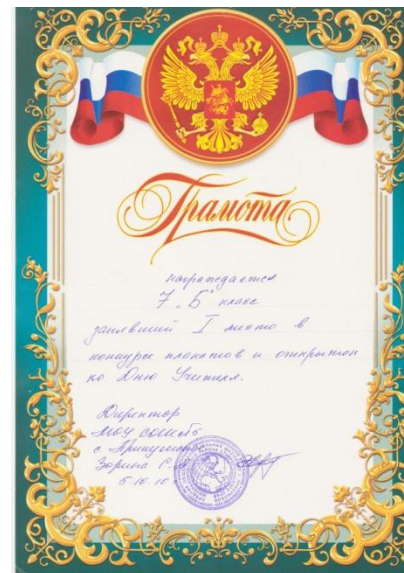 Грамота
награждается
7 „Б" класс
занявший I место в
конкурсе плакатов и открыток
ко Дню Учителя.
Директор
МОУ СОШ
с.
Зорина Г.
5.10.10